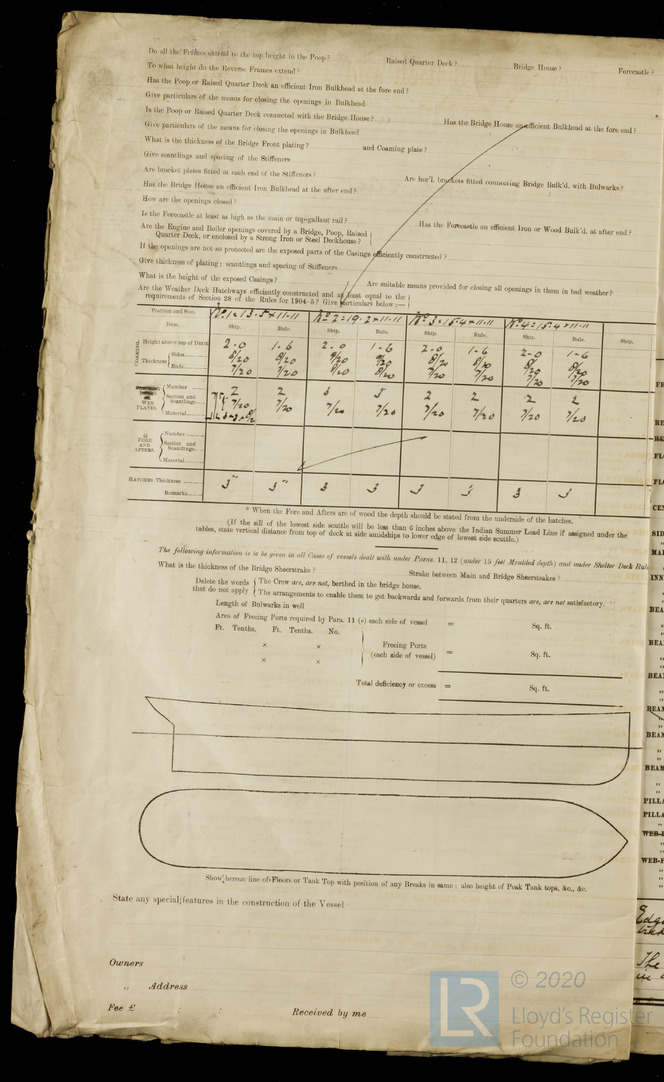 Do all the Frames extend to the top height in the Poop? Raised Quarter Deck? Bridge House? Forecastle?
To what height do the Reverse Frames extend?
Has the Poop or Raised Quarter Deck an efficient Iron Bulkhead at the fore end?
Give particulars of the means for closing the openings in Bulkhead
Is the Poop or Raised Quarter Deck connected with the Bridge House? Has the Bridge House an efficient Bulkhead at the fore end?
Give particulars of the means for closing the openings in Bulkhead
What is the thickness of the Bridge Front plating? and Coaming plate?
Give scantlings and spacing of the Stiffeners
Are bracket plates fitted at each end of the Stiffeners? Are hor'l. brackets fitted connecting Bridge Bulk'd. with Bulwarks?
Has the Bridge House an efficient Iron Bulkhead at the after end?
How are the openings closed?
Is the Forecastle at least as high as the main or top-gallant rail? Has the Forecastle an efficient Iron or Wood Bulk'd. at after end?
Are the Engine and Boiler openings covered by a Bridge, Poop, Raised
Quarter Deck, or enclosed by a Strong Iron or Steel Deckhouse?
If the openings are not so protected are the exposed parts of the Casings efficiently constructed?
Give thickness of plating; scantlings and spacing of Stiffeners
What is the height of the exposed Casings? Are suitable means provided for closing all openings in them in bad weather?
Are the Weather Deck Hatchways efficiently constructed and at least equal to the
requirements of Section 28 of the Rules for 1904-5? Give particulars below:—
Position and Size. No 1 = 13·5 × 11·11 No 2 = 19·2 × 11·11 No 3 = 15·4 × 11·11 No 4 = 15·4 × 11·11
Item. Ship. Rule. Ship. Rule. Ship. Rule. Ship. Rule. Ship.
COAMING.
Height above top of DECK 2-0 1-6 2-0 1-6 2-0 1-6 2-0 1-6
Thickness Sides 8/20 8/20 9/20 9/20 8/20 8/20 8/20 8/20
Ends 7/20 7/20 8/20 8/20 7/20 7/20 7/20 7/20
WEB PLATES.
Number 2 2 3 3 2 2 2 2
Section and Scantlings 7/20 7/20 7/20 7/20 7/20 7/20 7/20 7/20
Material
* FORE AND AFTERS.
Number
Section and Scantlings
Material
HATCHES Thickness 3" 3" 3 3 3 3 3 3
Remarks
* When the Fore and Afters are of wood the depth should be stated from the underside of the hatches.
(If the sill of the lowest side scuttle will be less than 6 inches above the Indian Summer Load Line if assigned under the
tables, state vertical distance from top of deck at side amidships to lower edge of lowest side scuttle.)
The following information is to be given in all Cases of vessels dealt with under Paras. 11, 12 (under 15 feet Moulded depth) and under Shelter Deck Rule
What is the thickness of the Bridge Sheerstrake? Strake between Main and Bridge Sheerstrakes?
Delete the words that do not apply
The Crew are, are not, berthed in the bridge house.
The arrangements to enable them to get backwards and forwards from their quarters are, are not satisfactory.
Length of Bulwarks in well
Area of Freeing Ports required by Para. 11 (e) each side of vessel = Sq. ft.
Ft. Tenths. Ft. Tenths. No.
× ×
Freeing Ports (each side of vessel) = Sq. ft.
× ×
Total deficiency or excess = Sq. ft.
Show hereon line of Floors or Tank Top with position of any Breaks in same; also height of Peak Tank tops, &c., &c.
State any special features in the construction of the Vessel
Owners
,, Address
Fee £ Received by me
LR © 2020
Lloyd's Register
Foundation